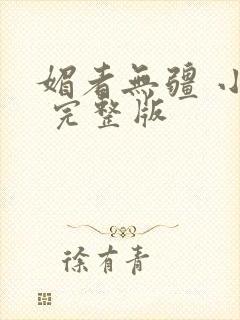 媚者無疆 小
完整版
徐有青